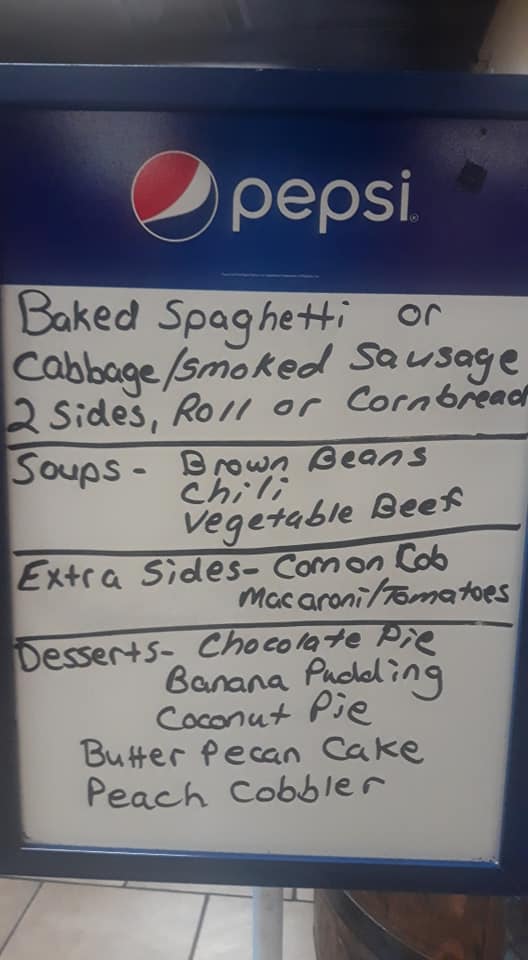 pepsi®
Baked Spaghetti or
Cabbage/Smoked Sausage
2 Sides, Roll or Cornbread
Soups- Brown Beans
Chili
Vegetable Beef
Extra Sides- Corn on Cob
Macaroni/Tomatoes
Desserts- Chocolate Pie
Banana Pudding
Coconut Pie
Butter Pecan Cake
Peach Cobbler